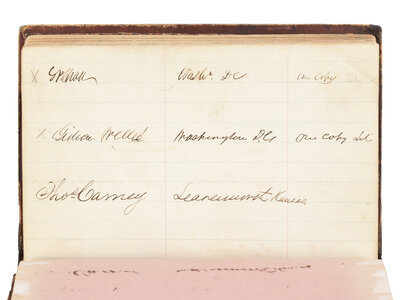 x Washn. DC One Coby
x Gideon Welles Washington D.C. One Coby Lel
Thos Carney Leavenworth Kansas